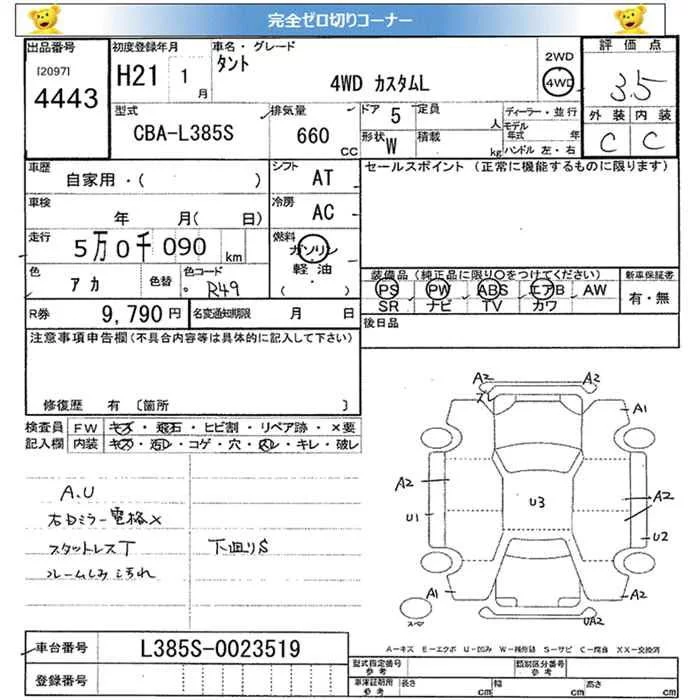 完全ゼロ切りコーナー
出品番号
[2097]
4443
初度登録年月
H21 1月
車名・グレード
タント
4WD カスタムL
2WD
4WD
評価点
3.5
型式
CBA-L385S
排気量
660 CC
ドア 5
定員 人
形状 W
積載 kg
ディーラー・並行
モデル年式 年
ハンドル 左・右
外装 内装
C C
車歴
自家用・( )
シフト
AT
セールスポイント (正常に機能するものに限ります)
車検
年 月( 日)
冷房
AC
走行
5万0千090 km
燃料
ガソリン
軽油
( )
色
アカ
色替
色コード
R49
装備品 (純正品に限り○をつけてください)
PS PW ABS エアB AW
SR ナビ TV カワ
新車保証書
有・無
R券 9,790円
名変通知期限 月 日
後日品
注意事項申告欄(不具合内容等は具体的に記入して下さい)
修復歴 有 〔箇所 〕
検査員 FW キズ・飛石・ヒビ割・リペア跡・×要
記入欄 内装 キズ・汚レ・コゲ・穴・スレ・キレ・破レ
A2 A2
A1
A2
U3
A2
U1
U2
A1
A2
UA2
スペ
A.U
右Dミラー電格×
スタットレスT
下廻りS
ルームしみ汚れ
A-キズ E-エクボ U-凹み W-補修跡 S-サビ C-腐食 XX-交換済
車台番号
L385S-0023519
登録番号
型式指定番号
参考
類別区分番号
参考
車庫証明用
参考
長さ cm
幅 cm
高さ cm